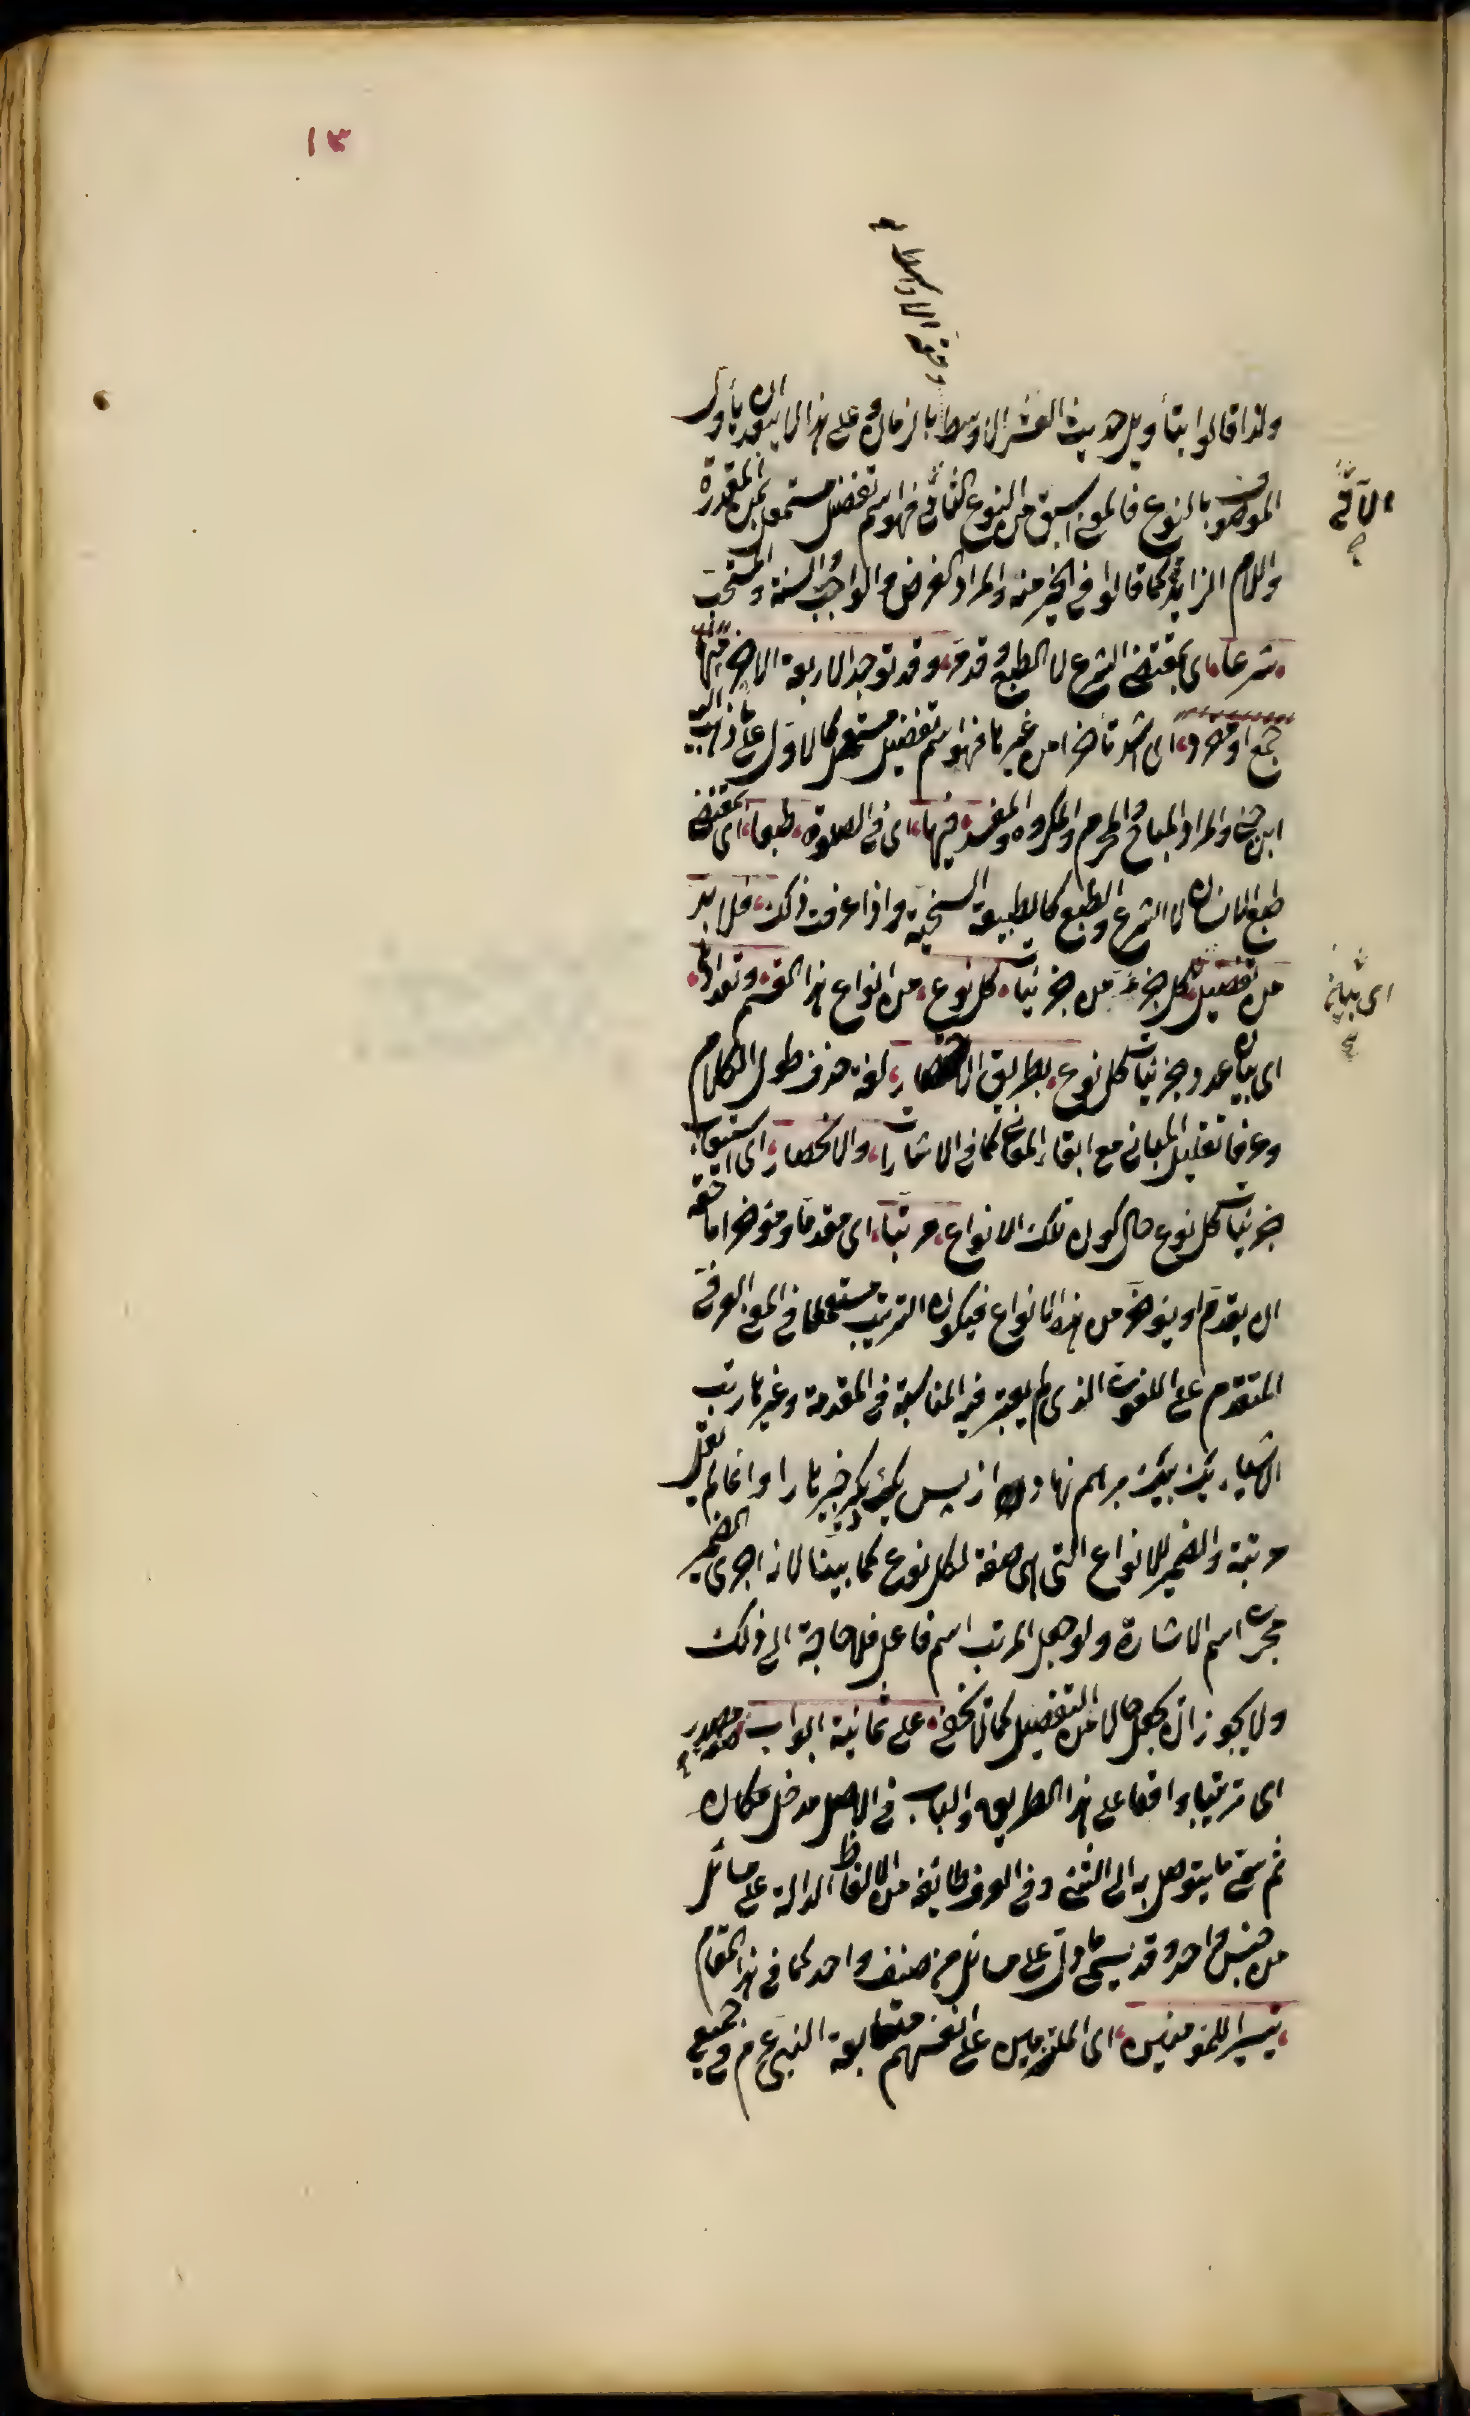 ١٣
ولذا قالوا بتأويل حديث العشر الاوسط بالزمان وعلى هذا لا يبعد ان يأول
الموصوف بالنوع فالمعنى اسبق من النوع الثاني فهو اسم تفضيل مستعمل بمن المقدرة
الآتي
واللام الزايدة كما قالوا في الخير منه والمراد الفرض والواجب والسنة والمستحب
شرعا اى بمقتضى الشرع لا الطبع قدم وقد توجد الاربعة الاخر منها
جمع او مفرد اى اشد تأخرا من غيرها فهو اسم تفضيل مستعمل كالاول على ما ذهب اليه
ابن جنى والمراد المباح والمحرم والمكروه والمفسد فيها اى في الصلوة طبعا اى بمقتضى
طبع الانسان لا الشرع والطبع كالطبيعة السخية واذا عرفت ذلك فلا بد
من تفصيل كل جزء من جزئيات كل نوع من انواع هذا القسم وتعدادها
اى بيان
اى بيان عدد جزئيات كل نوع بطريق الاختصار لغة حذف طول الكلام
وعرفا تقليل المبانى مع ابقاء المعانى كما في الاشارات والانحصار اى استيعاب
جزئيات كل نوع حال كون تلك الانواع مرتبا اى مقدما ومؤخرا ما حقه
ان يقدم او يؤخر من هذه الانواع فيكون الترتيب مستعملا في المعنى العرفى
المتقدم على اللغوى الذى لم يعتبر فيه المناسبة في المقدمة وغيرها رتب
الاشياء از پس يكديكر چيزها را وانما لم يقل
مرتبة والضمير للانواع التى هى صفة لكل نوع كما بينا لانه اجرى الضمير
مجرى اسم الاشارة ولو جعل المرتب اسم فاعل فلا حاجة الى ذلك
ولا يجوز ان يجعل حالا من التفصيل كما لا يخفى على ثمانية ابواب مصدر
اى ترتيبا واقعا على هذا الطريق والباب في الاصل مدخل مكان
ثم سمى ما يتوصل به الى الشئ وفي العرف طايفة من الالفاظ الدالة على مسائل
من جنس واحد وقد يسمى ما دل على مسائل من صنف واحد كما في هذا المقام
تيسيرا للمؤمنين اى الملتزمين على انفسهم متابعة النبى عم في جميع